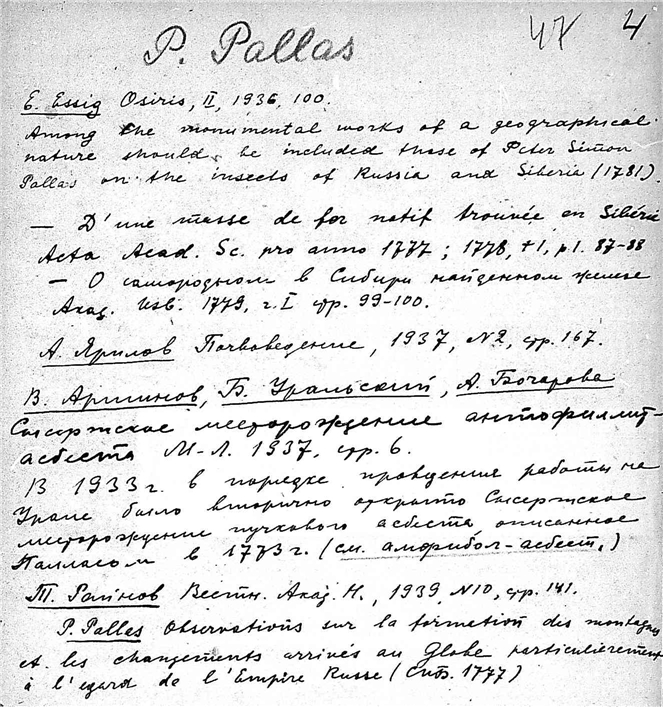 47 4
P. Pallas
E. Essig Osiris, II, 1936, 100.
Among the monumental works of a geographical
nature should be included those of Peter Simon
Pallas on the insects of Russia and Siberia (1781).
— D'une masse de fer natif trouvée en Sibérie
Acta Acad. Sc. pro anno 1777; 1778, t1, p1. 87-88
— О самородном в Сибири найденном железе
Акад. Изв. 1779, г. I стр. 99-100.
А. Ярилов Почвоведение, 1937, №2, стр. 167.
В. Аршинов, Б. Уральский, А. Бочарова
Сысертское месторождение антофиллит-
асбеста М-Л. 1937, стр. 6.
В 1933 г. в порядке проведения работы на
Урале было вторично открыто Сысертское
месторождение пучкового асбеста, описанное
Палласом в 1773 г. (см. амфибол-асбест.)
Т. Райнов Вестн. Акад. Н., 1939, №10, стр. 141.
P. Pallas Observations sur la formation des montagnes
et les changements arrivés au Globe particulièrement
à l'egard de l'Empire Russe (Спб. 1777)